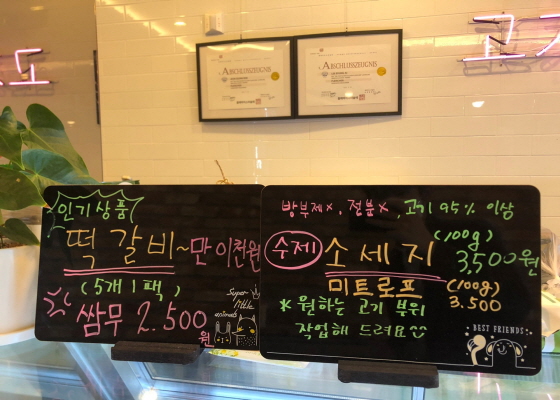 ABSCHLUSSZEUGNIS
ABSCHLUSSZEUGNIS
고기
인기상품
떡갈비~만이천원
(5개1팩)
쌈무 2.500원
Super little animals
방부제x, 전분x, 고기 95% 이상
수제 소세지 (100g) 3,500원
미트로프 (100g) 3.500
* 원하는 고기 부위
작업해 드려요
BEST FRIENDS